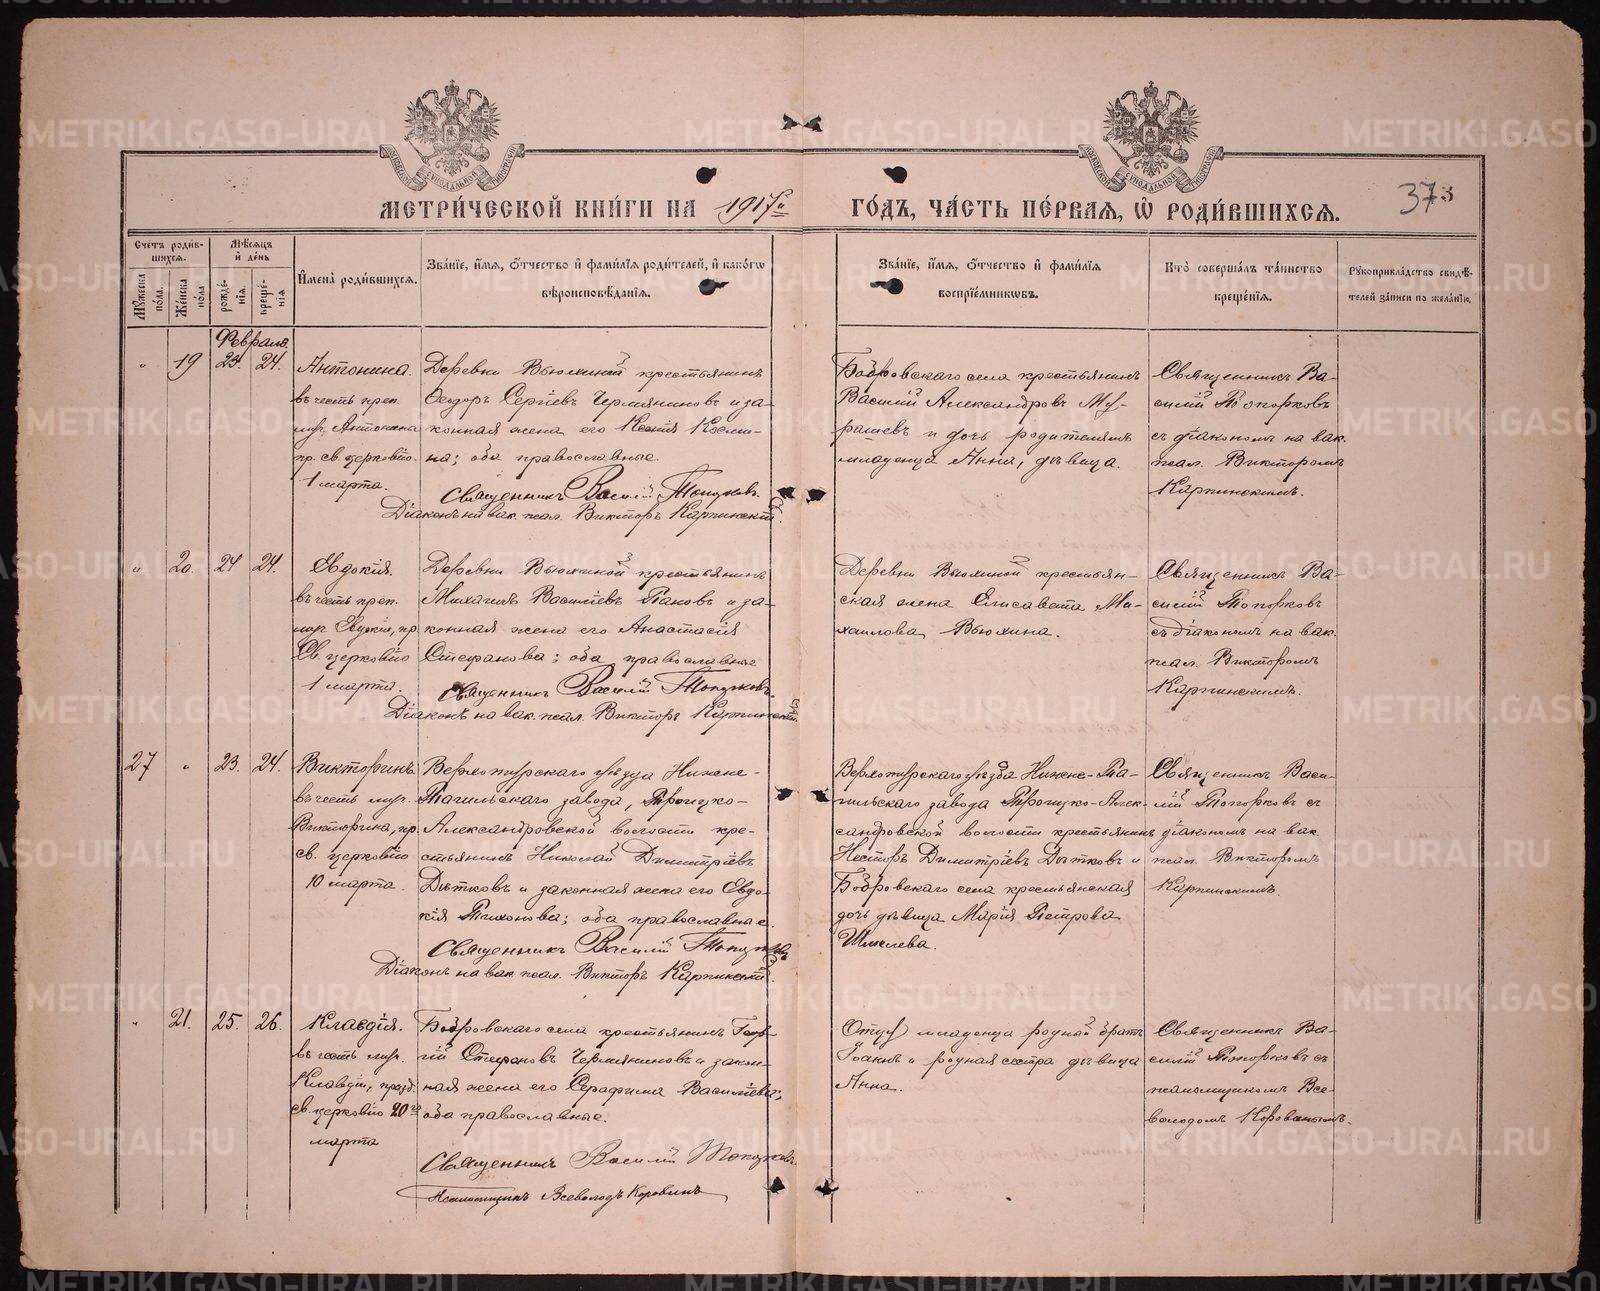 МЕТРИ́ЧЕСКОЙ КНИ́ГИ НА 1917й ГО́ДЪ, ЧА́СТЬ ПЕ́РВАЯ, Ѿ РОДИ́ВШИХСЯ.
373
Сче́тъ роди́в-
шихся.
Мѣ́сяцъ
и҆ де́нь
Мꙋ́жеска
по́ла.
Же́нска
по́ла
рожде́-
нїя.
креще́-
нїя
И҆мена̀ роди́вшихся.
Зва́нїе, и҆́мя, ѻ҆́тчество и҆ фами́лїя роди́телей, и҆ како́гѡ
вѣроисповѣ́данїя.
Зва́нїе, и҆́мя, ѻ҆́тчество и҆ фами́лїя
воспрїе́мникѡвъ.
Кто̀ соверша́лъ та́инство
креще́нїя.
Рꙋкоприкла́дство свидѣ́-
телей за́писи по жела́нїю.
Февраль.
" 19 23. 24.
Антонина.
въ честь преп.
муч. Антонины
пр. св. церковію
1 марта.
Деревни Вьюхиной крестьянинъ
Ѳеодоръ Сергіевъ Чермяниновъ и за-
конная жена его Ксенія Косми-
на; оба православные.
Священникъ Василій Топорковъ.
Діаконъ на вак. псал. Викторъ Карпинскій.
Бобровскаго села крестьянинъ
Василій Александровъ Му-
рашевъ и дочь родителямъ
младенца Анна, дѣвица.
Священникъ Ва-
силій Топорковъ
съ діакономъ на вак.
псал. Викторомъ
Карпинскимъ.
" 20. 24 24.
Евдокія.
въ честь преп.
муч. Евдокіи, пр.
св. церковію
1 марта.
Деревни Вьюхиной крестьянинъ
Михаилъ Василіевъ Пановъ и за-
конная жена его Анастасія
Стефанова; оба православные
Священникъ Василій Топорковъ.
Діаконъ на вак. псал. Викторъ Карпинскій
Деревни Вьюхиной крестьян-
ская жена Елисавета Ми-
хаилова Вьюхина.
Священникъ Ва-
силій Топорковъ
съ діакономъ на вак.
псал. Викторомъ
Карпинскимъ.
27 " 23. 24.
Викторинъ
въ честь муч.
Викторина, пр.
св. церковію
10 марта.
Верхотурскаго уѣзда Нижне-
Тагильскаго завода, Троицко-
Александровской волости кре-
стьянинъ Николай Димитріевъ
Дѣтковъ и законная жена его Евдо-
кія Тихонова; оба православные.
Священникъ Василій Топорковъ
Діаконъ на вак. псал. Викторъ Карпинскій.
Верхотурскаго уѣзда Нижне-Та-
гильскаго завода Троицко-Алек-
сандровской волости крестьянинъ
Несторъ Димитріевъ Дѣтковъ и
Бобровскаго села крестьянская
дочь дѣвица Марія Петрова
Шмелева.
Священникъ Васи-
лій Топорковъ съ
діакономъ на вак.
псал. Викторомъ
Карпинскимъ.
" 21. 25. 26.
Клавдія.
въ честь муч.
Клавдіи, празд.
св. церковію 20го
марта
Бобровскаго села крестьянинъ Геор-
гій Стефановъ Чермяниновъ и закон-
ная жена его Серафима Василіева;
оба православные.
Священникъ Василій Топорковъ.
Псаломщикъ Всеволодъ Коровинъ
Отцу младенца родной братъ
Іоаннъ и родная сестра дѣвица
Анна.
Священникъ Ва-
силій Топорковъ съ
псаломщикомъ Все-
володомъ Коровинымъ.
METRIKI.GASO-URAL.RU